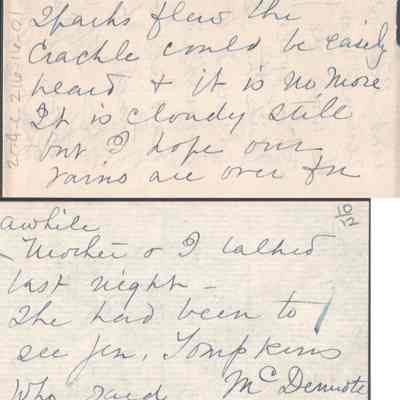 Sparks flew the
Crackle could be easily
heard + it is no more
It is cloudy still
but I hope our
rains are over for
awhile
Mother & I talked
last night -
She had been to
see Jen. Tompkins
Who said McDermote
10/12